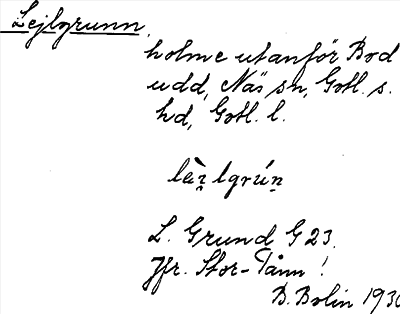 Lejlgrunn.
holme utanför Bod
udd, Näs sn, Gotl. s.
hd, Gotl. l.
L. Grund G 23.
Jfr. Stor-Tånn!
B. Bolin 1930